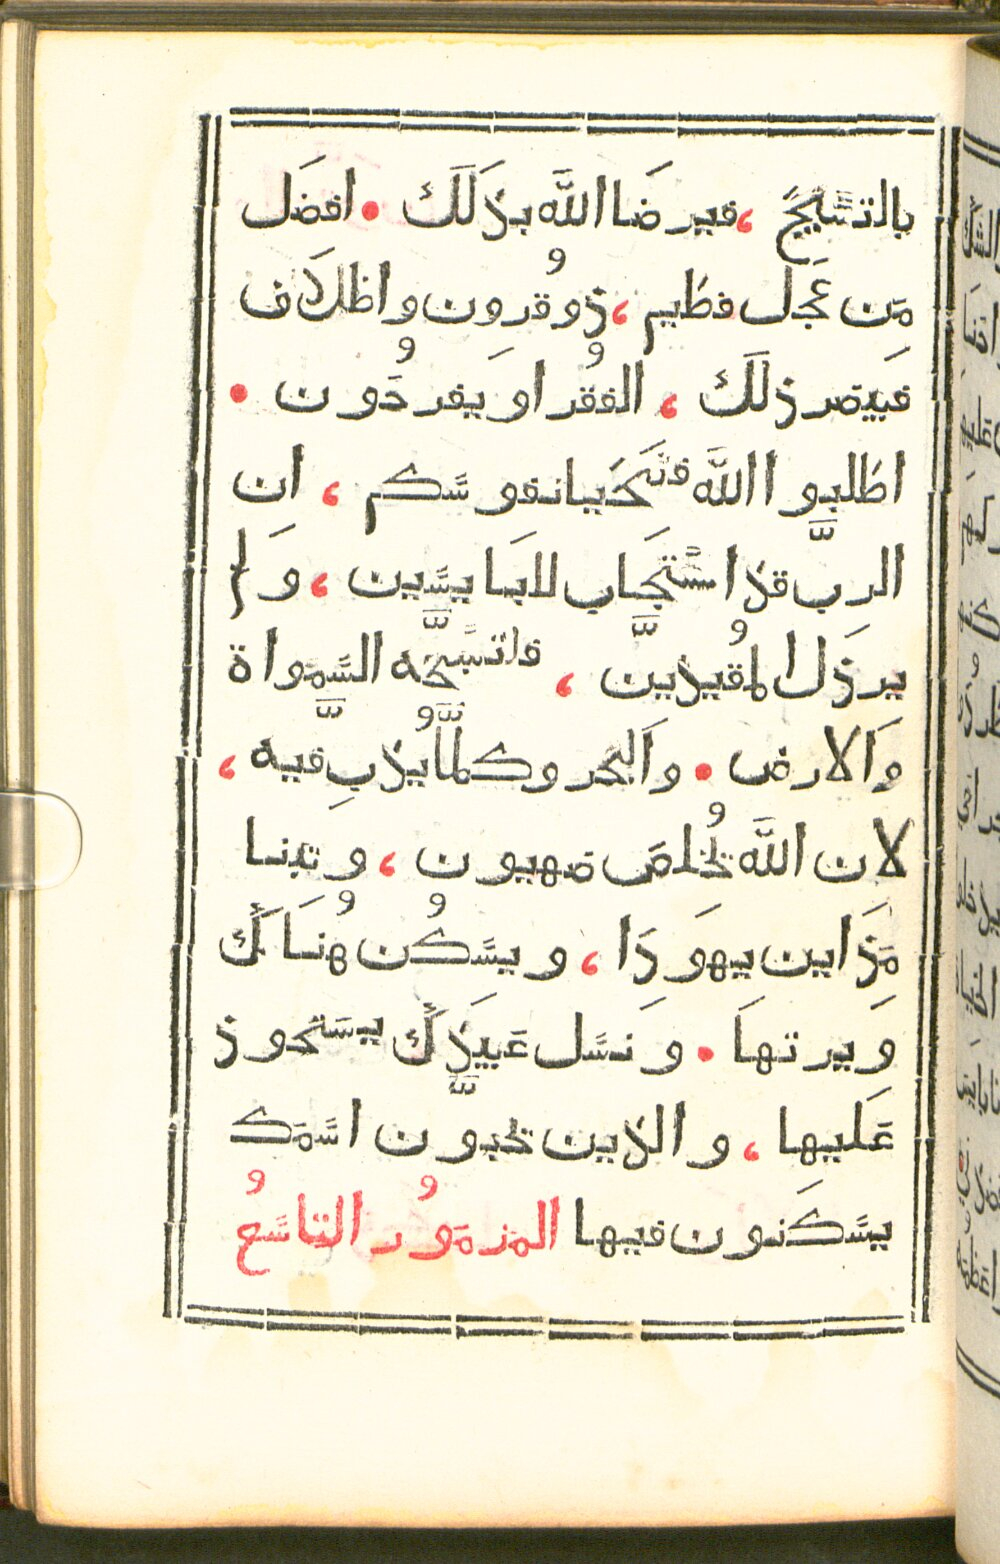 بالتسبيح ، فيرضا الله بذلك • افضل
من عجل فطيم ، ذو قرون واظلاف
فيبصر ذلك ، الفقرا ويفرحون •
اطلبوا الله فتحيا نفوسكم ، ان
الرب قد استجاب للبايسين ، ولم
يرذل المقيدين ، فلتسبحه السمواة
والارض • والبحر وكلما يدب فيه ،
لان الله يخلص صهيون ، وتبنا
مداين يهودا ، ويسكن هناك
ويرتها • ونسل عبيدك يستحوذ
عليها ، والذين يحبون اسمك
يسكنون فيها المزمور التاسع